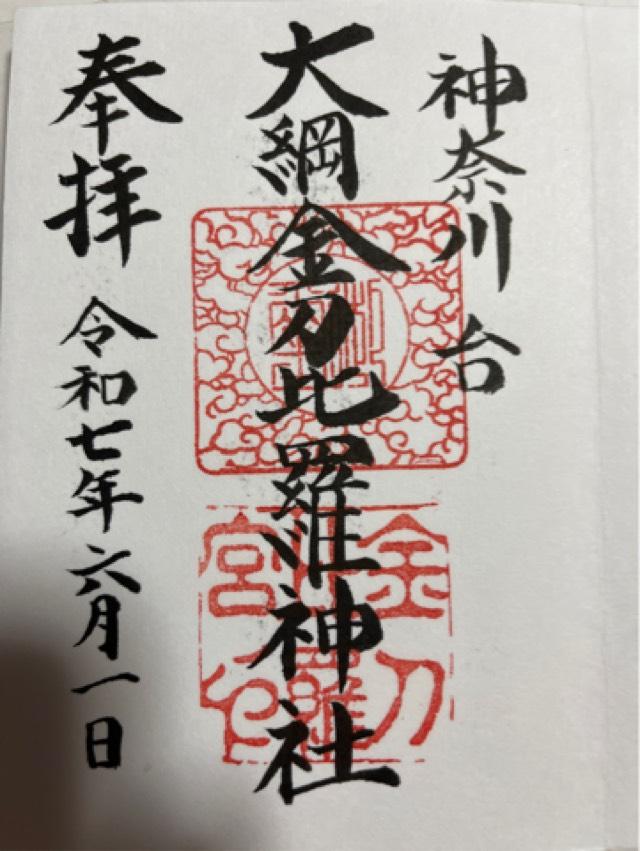 神奈川 台
大綱金刀比羅神社
奉拝 令和七年六月一日